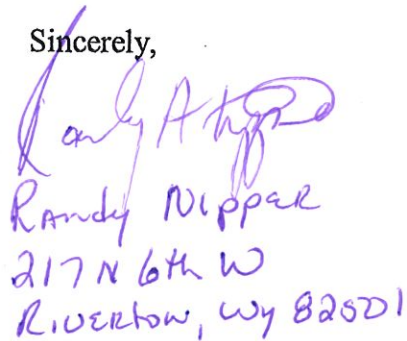 Sincerely,
Randy A Nipper
Randy Nipper
217 N 6th W
Riverton, Wy 82501